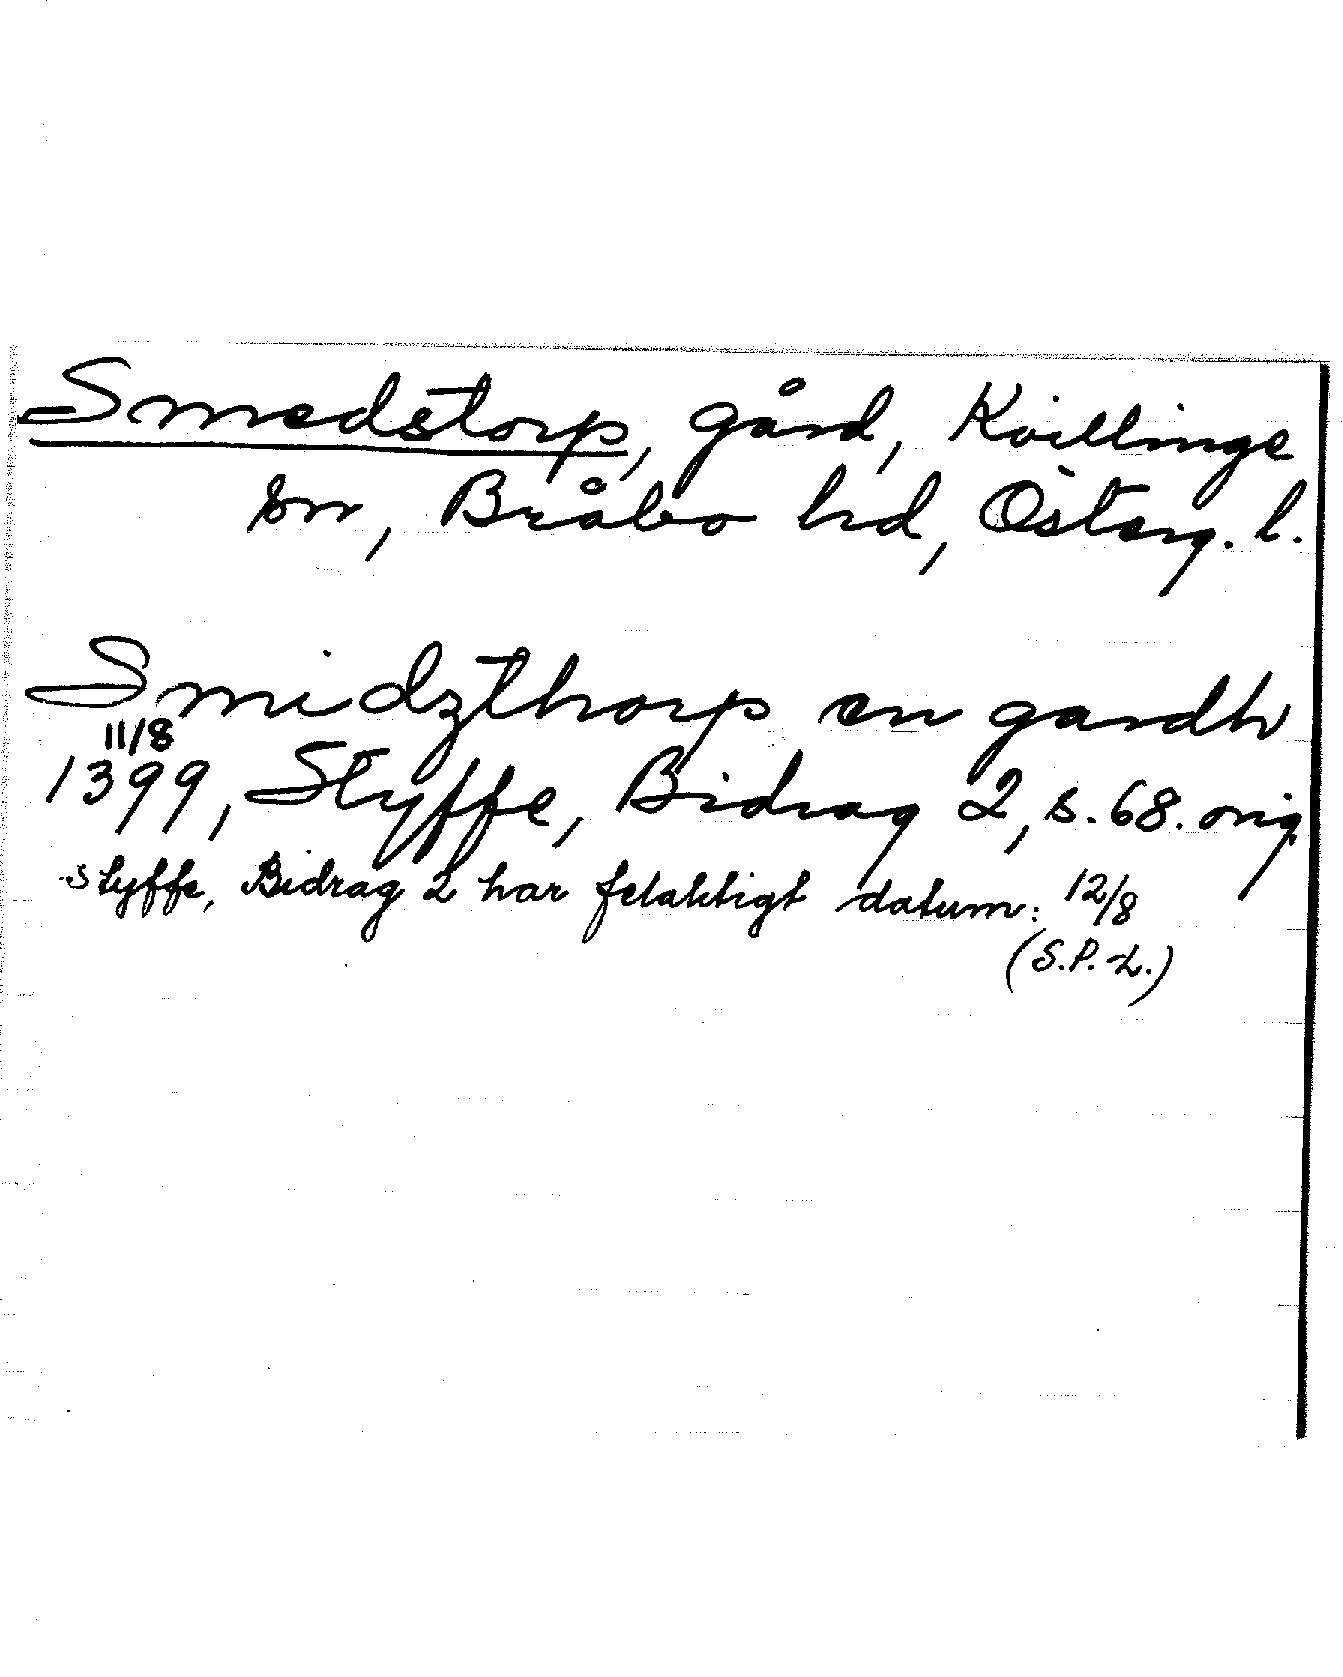 Smedstorp, gård, Kvillinge
sn, Bråbo hd, Österg. l.
Smidzthorp en gardh
11/8
1399, Styffe, Bidrag 2, s. 68. orig
Styffe, Bidrag 2 har felaktigt datum: 12/8
(S.P.L.)